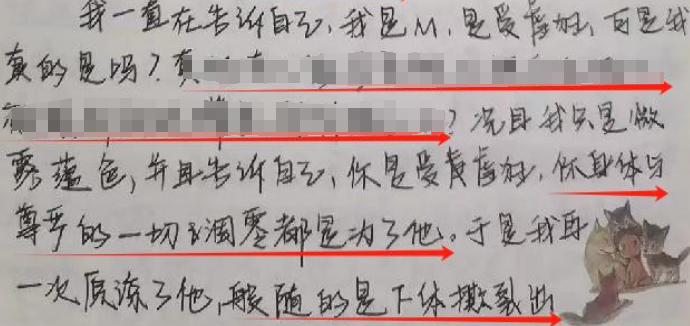 我一直在告诉自己，我是M，是受虐狂，可是我
真的是吗？真
？况且我只是做
蕴色，并且告诉自己，你是受虐狂，你身体与
尊严的一切凋零都是为了他。于是我再
一次原谅了他，随的是下体撕裂出